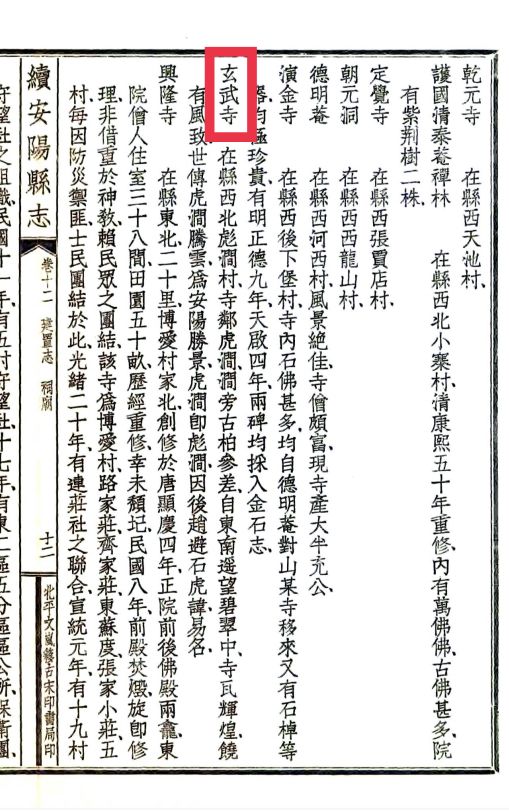 乾元寺　在縣西天池村、
護國清泰菴禪林　在縣西北小寨村、清康熙五十年重修、內有萬佛佛、古佛甚多、院
有紫荆樹二株、
定覺寺　在縣西張賈店村、
朝元洞　在縣西西龍山村、
德明菴　在縣西河西村、風景絕佳、寺僧頗富、現寺產大半充公、
演金寺　在縣西後下堡村、寺內石佛甚多、均自德明菴對山某寺移來、又有石棹等
器、均極珍貴、有明正德九年、天啟四年、兩碑、均採入金石志、
玄武寺　在縣西北彪澗村、寺鄰虎澗、澗旁古柏參差、自東南遥望、碧翠中、寺瓦輝煌、饒
有風致、世傳虎澗騰雲、爲安陽勝景、虎澗卽彪澗、因後趙避石虎諱易名、
興隆寺　在縣東北二十里、博愛村家北、創修於唐顯慶四年、正院前後佛殿、兩龕、東
院僧人住室三十八間、田園五十畝、歷經重修、幸未頹圮、民國八年、前殿焚燬、旋卽修
理、非借重於神教、賴民眾之團結、該寺爲博愛村、路家莊、齊家莊、東蘇度、張家小莊、五
村、每因防災禦匪、士民團結於此、光緒二十年、有連莊社之聯合、宣統元年、有十九村
續安陽縣志　卷十二　建置志　祠廟　十二　北平文嵐簃古宋印書局印
守望社之組織、民國十一年、有五村守望社、十七年、有東二區五分區區公所、保衛團、